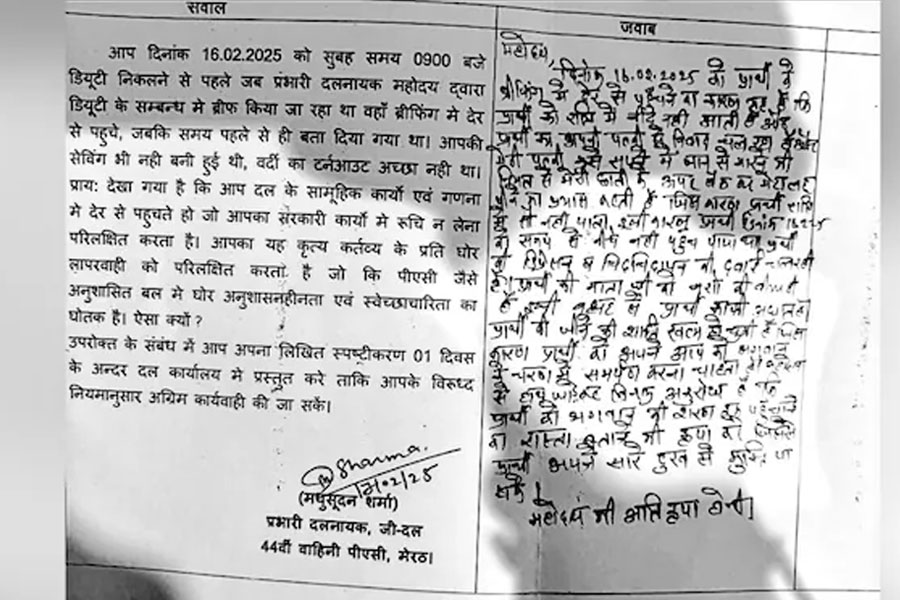 सवाल
आप दिनांक 16.02.2025 को सुबह समय 0900 बजे
डियूटी निकलने से पहले जब प्रभारी दलनायक महोदय द्वारा
डियूटी के सम्बन्ध मे ब्रीफ किया जा रहा था वहाँ ब्रीफिंग मे देर
से पहुचे, जबकि समय पहले से ही बता दिया गया था। आपकी
सेविंग भी नही बनी हुई थी, वर्दी का टर्नआउट अच्छा नही था।
प्राय: देखा गया है कि आप दल के सामूहिक कार्यो एवं गणना
मे देर से पहुचते हो जो आपका सरकारी कार्यो मे रूचि न लेना
परिलक्षित करता है। आपका यह कृत्य कर्तव्य के प्रति घोर
लापरवाही को परिलक्षित करता है जो कि पीएसी जैसे
अनुशासित बल मे घोर अनुशासनहीनता एवं स्वेच्छाचारिता का
धोतक है। ऐसा क्यों ?
उपरोक्त के संबंध में आप अपना लिखित स्पष्टीकरण 01 दिवस
के अन्दर दल कार्यालय मे प्रस्तुत करे ताकि आपके विरूध्द
नियमानुसार अग्रिम कार्यवाही की जा सकें।
Sharma
17/02/25
(मधुसूदन शर्मा)
प्रभारी दलनायक, जी-दल
44वीं वाहिनी पीएसी, मेरठ।
जवाब
महोदय,
दिनांक 16.02.2025 को प्रार्थी के
ब्रीफिंग में देर से पहुंचने का कारण यह है कि
प्रार्थी को रात्रि में नींद नही आती है
प्रार्थी का अपनी पत्नी से विवाद चल रहा है
मेरी पत्नी मुझे सपने में जान से मारने की
से मेरी छाती के ऊपर बैठ कर मेरा खून
पीने का प्रयास करती है जिस कारण प्रार्थी रात्रि
में सो नही पाता, इसी कारण प्रार्थी दिनांक
को समय से नीचे नही पहुंच पाया था प्रार्थी
की डिप्रेशन व चिडचिडापन की दवाई
है। प्रार्थी की माता जी को नसों की
है प्रार्थी काफी
प्रार्थी की जीने की शक्ति खत्म हो चुकी है जिस
कारण प्रार्थी को अपने आप को भगवान
चरणो में समर्पण करना चाहता है
से अनुरोध है कि
प्रार्थी को भगवान की शरण
का रास्ता बताने की कृपा करे जिससे
प्रार्थी अपने सारे दुःख से मुक्ति पा
सके।
महोदय की अति कृपा होगी।